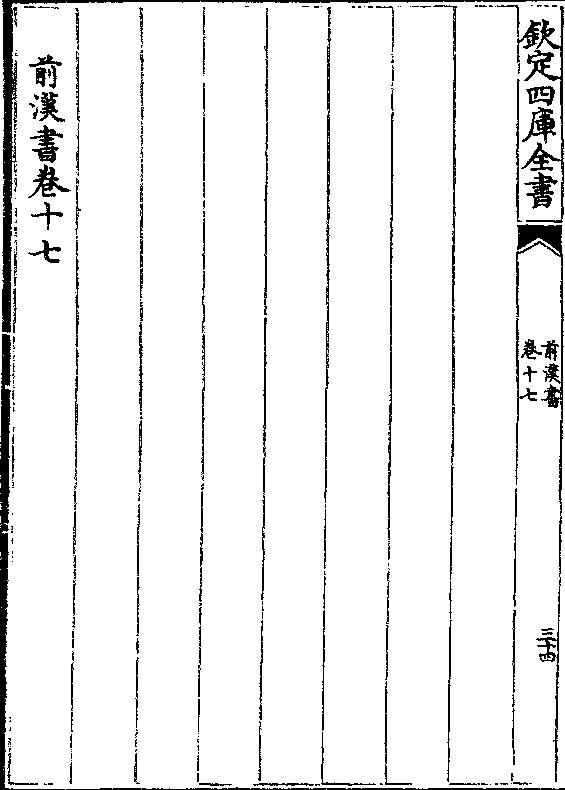 欽定四庫全書
前漢書
卷十七
三十四
前漢書卷十七